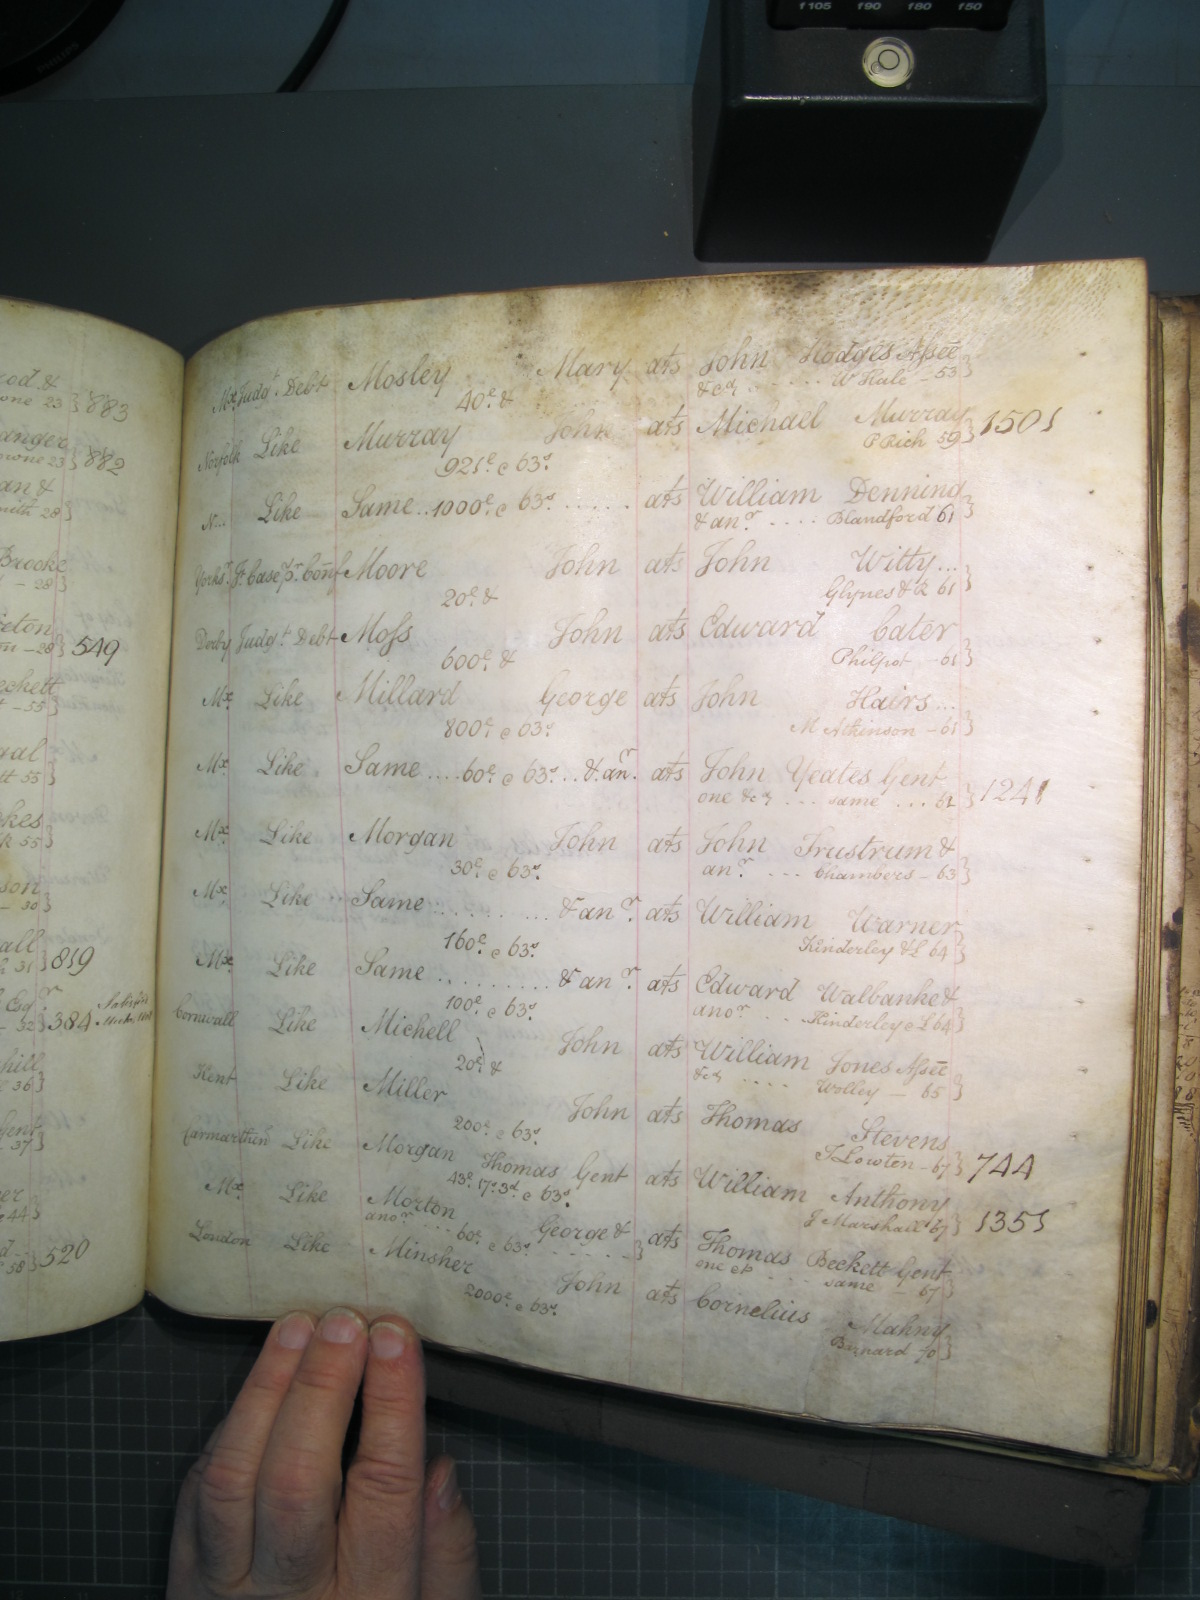 f105 f90 f80 f50
PHILIPS
883
882
Brooke
- 28}
- 28} 549
- 55}
55}
55}
- 30}
31} 819
Esqr
- 32} 384
36}
37}
44}
58} 520
Mx Judgt Debt Mosley Mary ats John Hodges Assee
40£ & &c. .... W Hale - 53}
Norfolk Like Murray John ats Michael Murray
921£ e 63s. P Rich 59} 1501
Like Same .. 1000£ e 63s ..... ats William Denning
& anr. .... Blandford 61}
Yorks. Moore John ats John Witty...
20£ & Glynes & R 61}
Derby Judgt Debt Moss John ats Edward Cater
600£ & Philpot - 61}
Mx Like Millard George ats John Hairs...
800£ e 63s. M Atkinson - 61}
Mx Like Same .... 60£ e 63s. .. & anr. ats John Yeates Gent
one &c ... same ... 61} 1241
Mx Like Morgan John ats John Trustrum &
30£ e 63s. anr. ... Chambers - 63}
Mx Like Same ........ & anr. ats William Warner
160£ e 63s. Kinderley & L 64}
Mx Like Same .......... & anr. ats Edward Walbanke &
100£ e 63s. anor. .. Kinderley e L 64}
Cornwall Like Michell John ats William Jones Assee
20£ & &c .... Wolley - 65}
Kent Like Miller John ats Thomas Stevens
200£ e 63s. T Lowten - 67} 744
Carmarthen Like Morgan Thomas Gent ats William Anthony
43£. 17s. 3d. e 63s. J Marshall 67} 1351
Mx Like Morton George & ats Thomas Beckett Gent
anor .... 60£ e 63s. ....} one &c .... same - 67}
London Like Minsher John ats Cornelius Mahny
2000£ e 63s. Barnard 70}